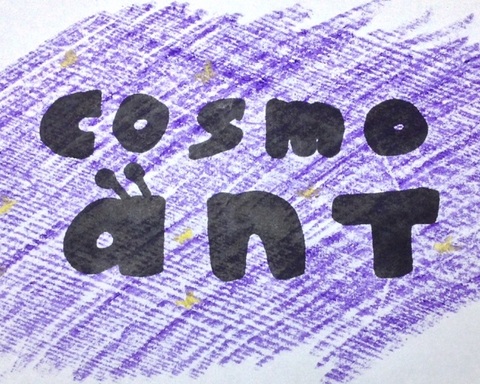 cosmo
anT